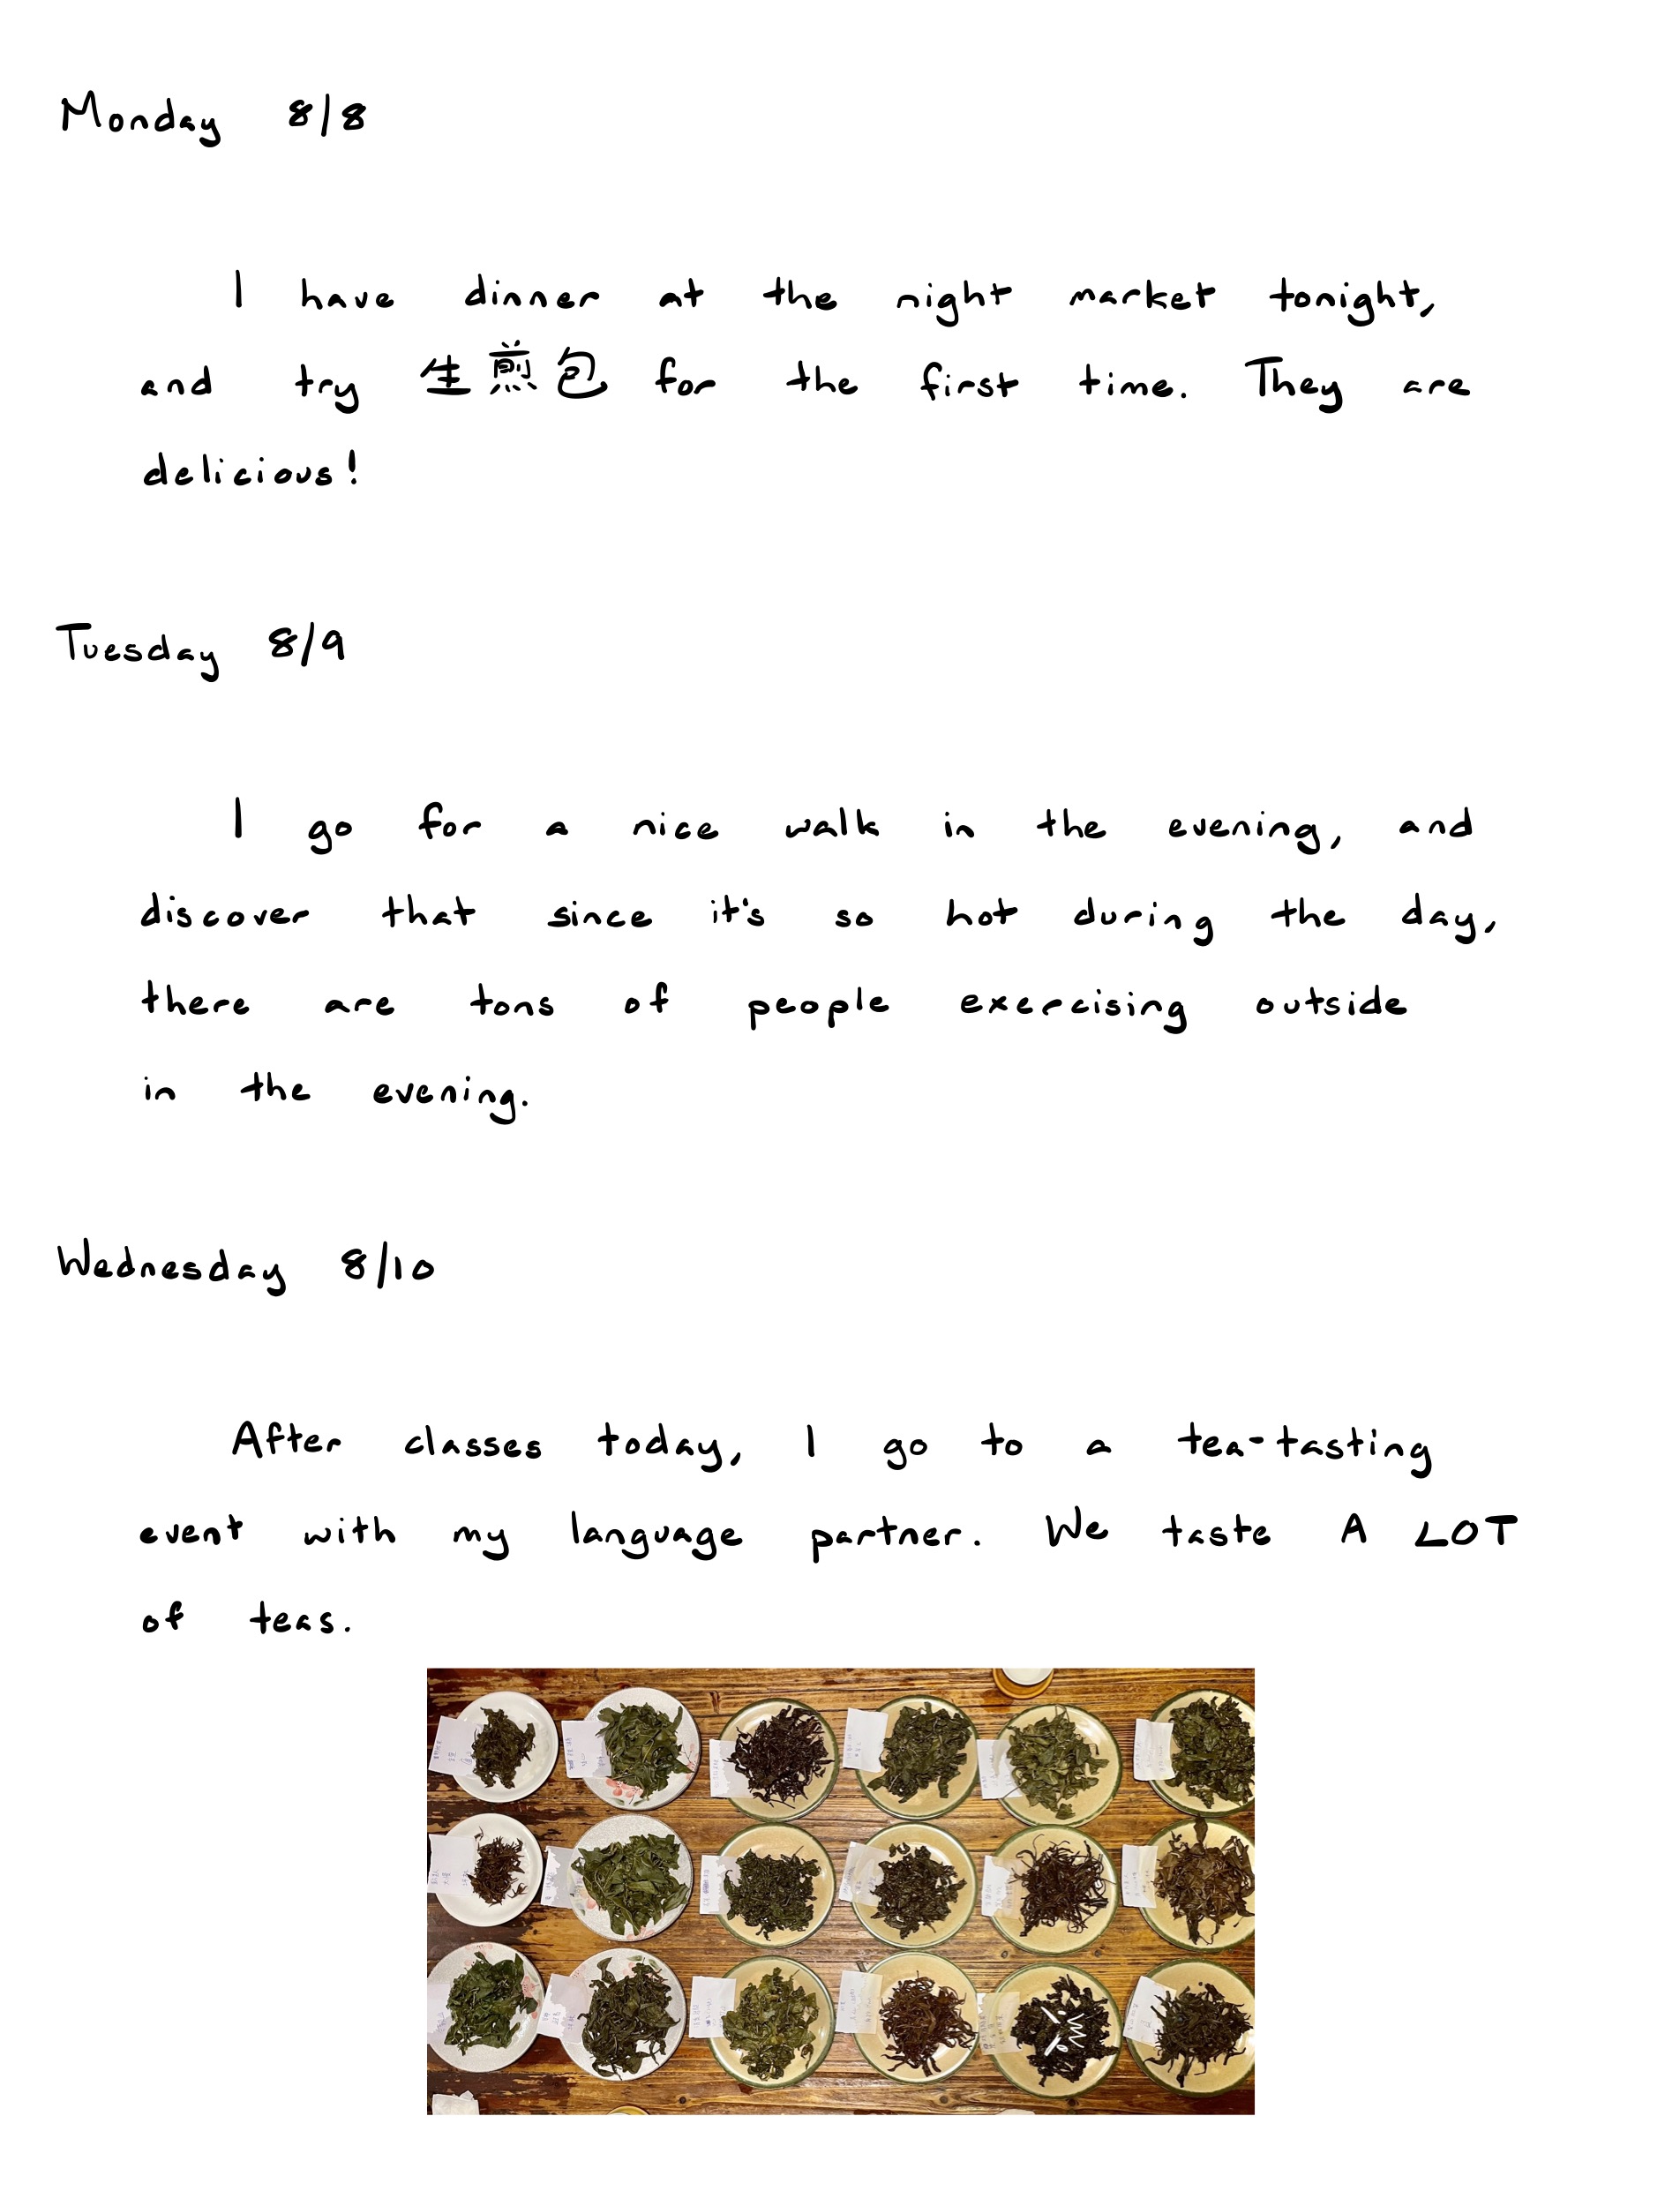 Monday 8/8
I have dinner at the night market tonight,
and try 生煎包 for the first time. They are
delicious!
Tuesday 8/9
I go for a nice walk in the evening, and
discover that since it's so hot during the day,
there are tons of people exercising outside
in the evening.
Wednesday 8/10
After classes today, I go to a tea-tasting
event with my language partner. We taste A LOT
of teas.